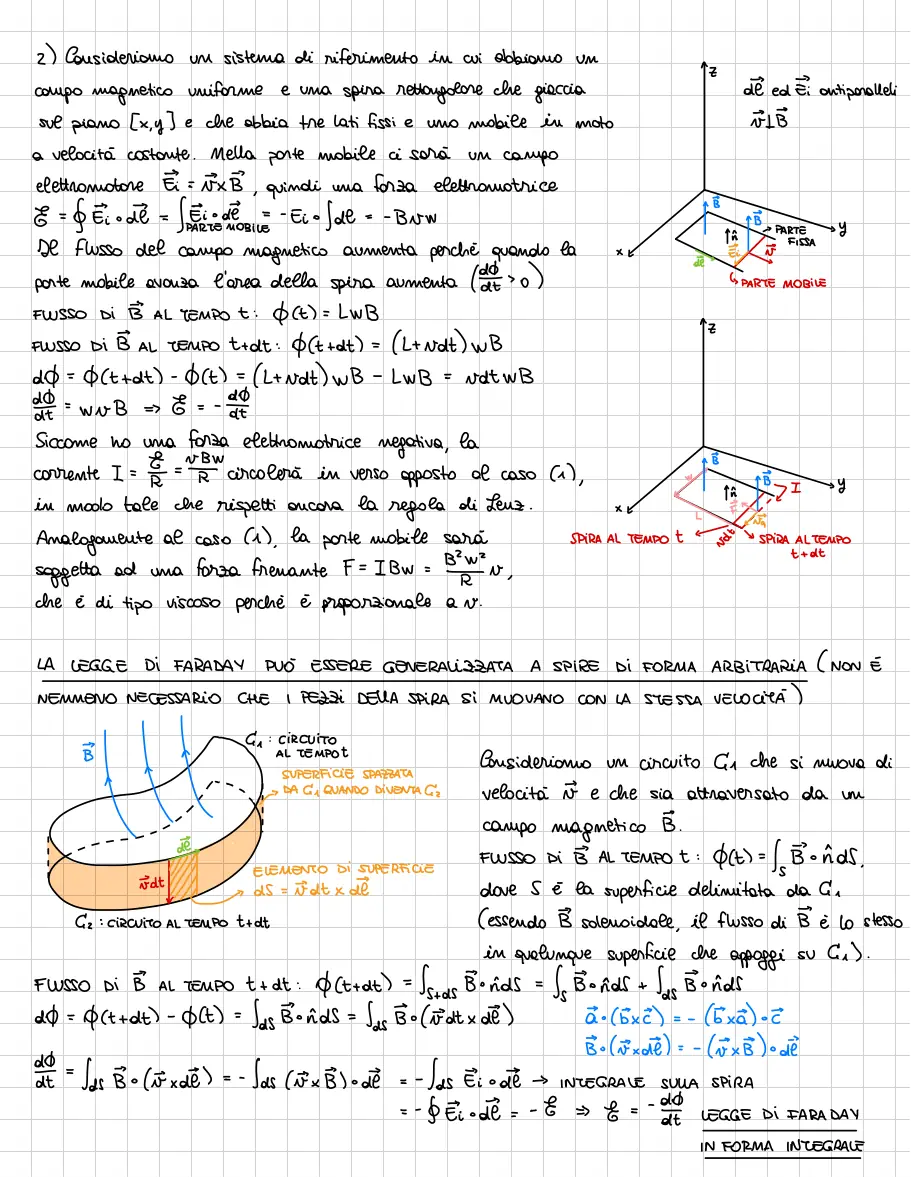 2) Consideriamo un sistema di riferimento in cui abbiamo un
campo magnetico uniforme e una spira rettangolare che giaccia
sul piano [x,y] e che abbia tre lati fissi e uno mobile in moto
a velocità costante. Nella parte mobile ci sarà un campo
elettromotore E⃗i = v⃗×B⃗, quindi una forza elettromotrice
ℰ = ∮ E⃗i∘dℓ⃗ = ∫ E⃗i∘dℓ⃗ = -Ei∘∫dℓ = -Bvw
PARTE MOBILE
Il flusso del campo magnetico aumenta perché quando la
parte mobile avanza l'area della spira aumenta (dϕ/dt > 0)
FLUSSO DI B⃗ AL TEMPO t: ϕ(t) = LwB
FLUSSO DI B⃗ AL TEMPO t+dt: ϕ(t+dt) = (L+vdt)wB
dϕ = ϕ(t+dt) - ϕ(t) = (L+vdt)wB - LwB = vdtwB
dϕ/dt = wvB ⇒ ℰ = -dϕ/dt
Siccome ho una forza elettromotrice negativa, la
corrente I = ℰ/R = vBw/R circolerà in verso opposto al caso (1),
in modo tale che rispetti ancora la regola di Lenz.
Analogamente al caso (1), la parte mobile sarà
soggetta ad una forza frenante F = IBw = B²w²/R v,
che è di tipo viscoso perché è proporzionale a v.
z
dℓ⃗ ed E⃗i antiparalleli
v⃗⊥B⃗
B⃗
B⃗
n̂
PARTE FISSA
y
x
dℓ⃗
E⃗i
v⃗
PARTE MOBILE
z
B⃗
B⃗
w
n̂
I
y
x
L
vdt
SPIRA AL TEMPO t
SPIRA AL TEMPO
t+dt
LA LEGGE DI FARADAY PUÒ ESSERE GENERALIZZATA A SPIRE DI FORMA ARBITRARIA (NON È
NEMMENO NECESSARIO CHE I PEZZI DELLA SPIRA SI MUOVANO CON LA STESSA VELOCITÀ)
B⃗
C1: CIRCUITO
AL TEMPO t
SUPERFICIE SPAZZATA
DA C1 QUANDO DIVENTA C2
dℓ⃗
v⃗dt
ELEMENTO DI SUPERFICIE
dS = v⃗dt×dℓ⃗
C2: CIRCUITO AL TEMPO t+dt
Consideriamo un circuito C1 che si muova di
velocità v⃗ e che sia attraversato da un
campo magnetico B⃗.
FLUSSO DI B⃗ AL TEMPO t: ϕ(t) = ∫S B⃗∘n̂dS,
dove S è la superficie delimitata da C1
(essendo B⃗ solenoidale, il flusso di B⃗ è lo stesso
in qualunque superficie che appoggi su C1).
FLUSSO DI B⃗ AL TEMPO t+dt: ϕ(t+dt) = ∫S+dS B⃗∘n̂dS = ∫S B⃗∘n̂dS + ∫dS B⃗∘n̂dS
dϕ = ϕ(t+dt) - ϕ(t) = ∫dS B⃗∘n̂dS = ∫dS B⃗∘(v⃗dt×dℓ⃗)
a⃗∘(b⃗×c⃗) = -(b⃗×a⃗)∘c⃗
B⃗∘(v⃗×dℓ⃗) = -(v⃗×B⃗)∘dℓ⃗
dϕ/dt = ∫dS B⃗∘(v⃗×dℓ⃗) = -∫dS (v⃗×B⃗)∘dℓ⃗ = -∫dS E⃗i∘dℓ⃗ → INTEGRALE SULLA SPIRA
= -∮ E⃗i∘dℓ⃗ = -ℰ ⇒ ℰ = -dϕ/dt LEGGE DI FARADAY
IN FORMA INTEGRALE